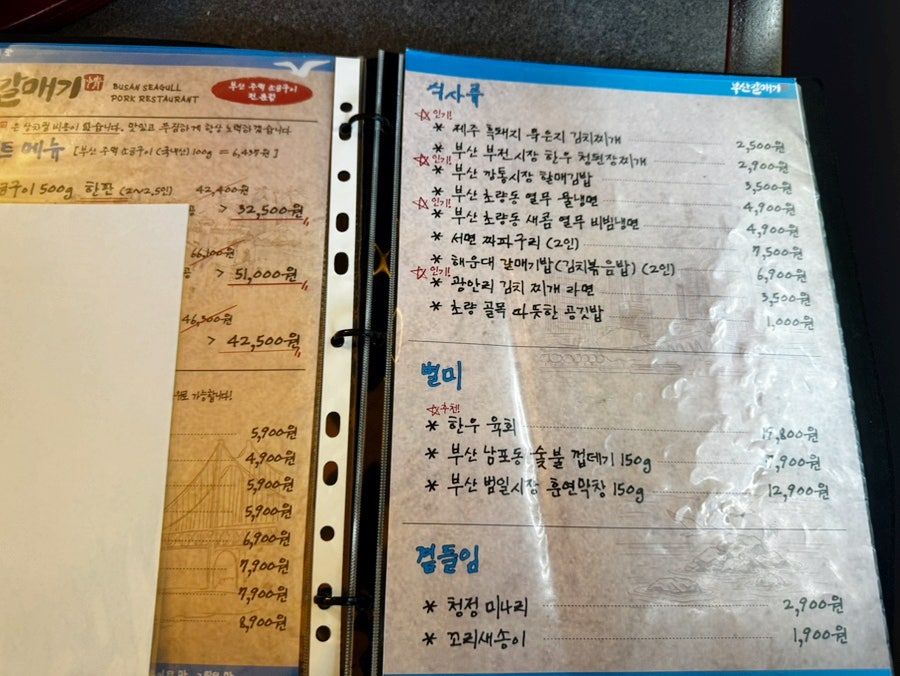 갈매기
BUSAN SEAGULL
PORK RESTAURANT
부산 주먹 소금구이
전문점
맛있고 푸짐하게 항상 노력하겠습니다
트 메뉴 [부산 주먹 소금구이 (국내산) 100g = 6,437원]
금구이 500g 한판 (2~2.5인) 42,400원
> 32,500원
66,100원
> 51,000원
46,300원
> 42,500원
가능합니다!
5,900원
4,900원
5,900원
5,900원
6,900원
7,900원
7,900원
8,900원
부산갈매기
식사류
☆인기!
* 제주 흑돼지 묵은지 김치찌개 2,500원
☆인기!
* 부산 부전시장 한우 청된장찌개 2,900원
* 부산 깡통시장 할매김밥 3,500원
☆인기!
* 부산 초량동 열무 물냉면 4,900원
* 부산 초량동 새콤 열무 비빔냉면 4,900원
* 서면 짜파구리 (2인) 7,500원
* 해운대 갈매기밥(김치볶음밥) (2인) 6,900원
☆인기!
* 광안리 김치찌개 라면 3,500원
* 초량 골목 따듯한 공깃밥 1,000원
별미
☆추천!
* 한우 육회 ,800원
* 부산 남포동 숯불 껍데기 150g 7,900원
* 부산 범일시장 훈연막창 150g 12,900원
곁들임
* 청정 미나리 2,900원
* 꼬리새송이 1,900원